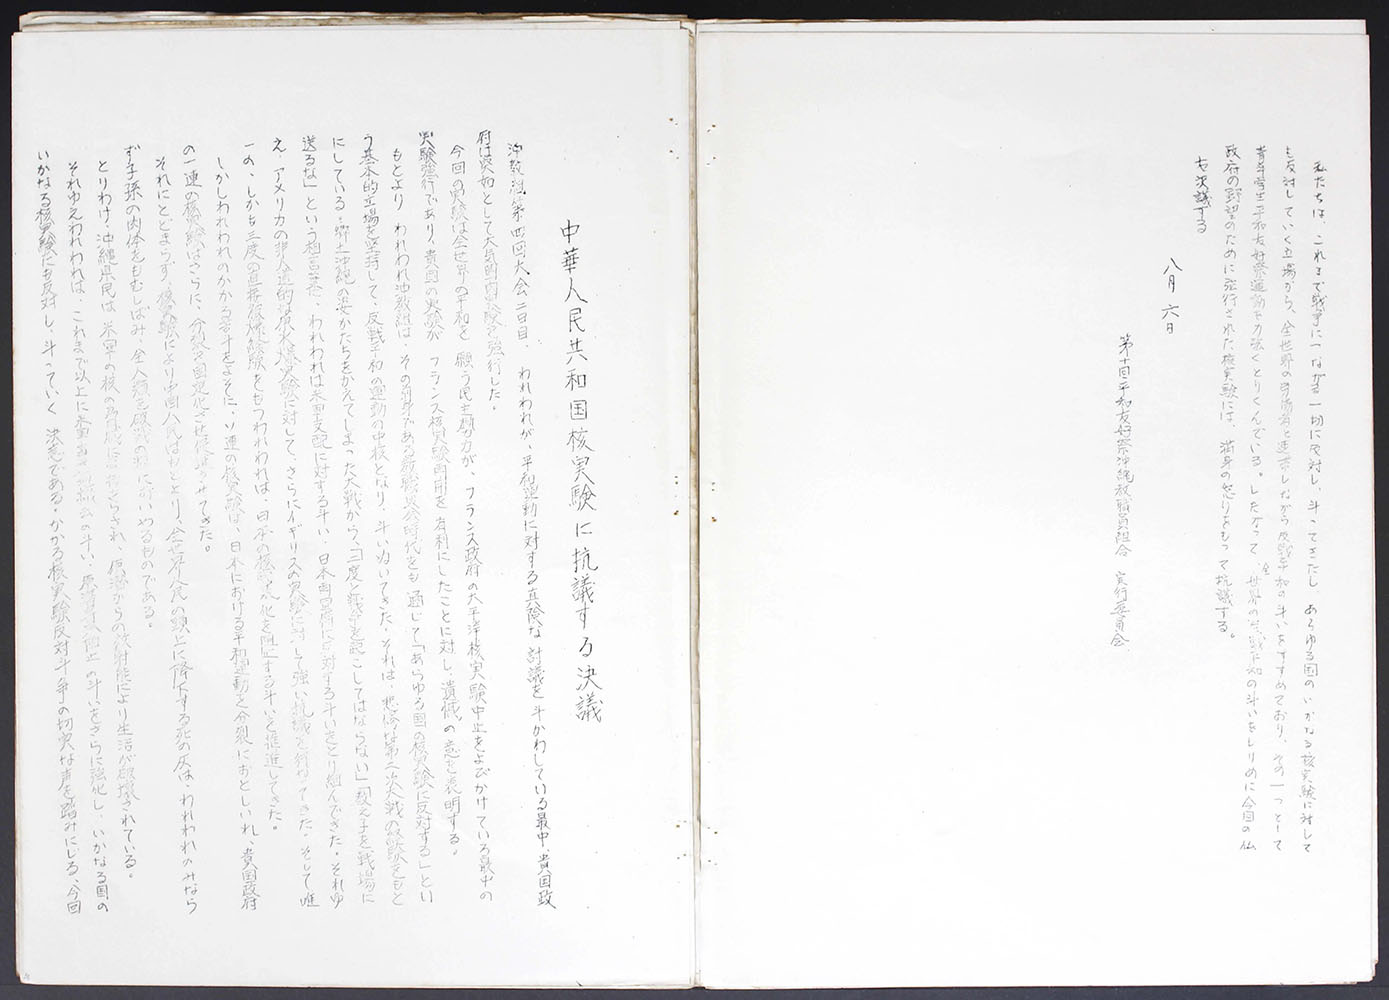 私たちは、これまで戦争につながる一切に反対し、斗ってきたし、あらゆる国のいかなる核実験に対して
も反対していく立場から、全世界の労働者と連帯しながら反戦平和の斗いをすすめており、その一つとして
青年学生平和友好祭運動を力強くとりくんでいる。したがって、全世界の反戦平和の斗いをしりめに今回の仏
政府の野望のために強行された核実験には、満身の怒りをもって抗議する。
右決議する
八月六日
第十回平和友好祭沖縄教職員組合 実行委員会
中華人民共和国核実験に抗議する決議
沖教組第四回大会二日目、われわれが、平和運動に対する真険な討議を斗かわしている最中、貴国政
府は突如として大気圏内核実験を強行した。
今回の実験は全世界の平和を願う民主勢力が、フランス政府の太平洋核実験中止をよびかけている最中の
実験強行であり、貴国の実験がフランス核実験再開を有利にしたことに対し、遺憾の意を表明する。
もとより、われわれ沖教組は、その前身である教職員会時代をも通して「あらゆる国の核実験に反対する」とい
う基本的立場を堅持して、反戦平和の運動の中核となり、斗いぬいてきた。それは、悲惨な第二次大戦の経験をもと
にしている。郷土沖縄の姿かたちをかえてしまった大戦から、「三度と戦争を起こしてはならない」「教え子を戦場に
送るな」という相言葉に、われわれは米軍支配に対する斗い、日本軍国主義に対する斗いをとり組んできた。それゆ
え、アメリカの非人道的な原水爆実験に対して、さらにイギリスの実験に対して強い抗議を行なってきた。そして唯
一の、しかも三度の直接被爆経験をもつわれわれは、日本の核武装化を阻止する斗いを推進してきた。
しかしわれわれのかかる苦斗をよそに、ソ連の核実験は、日本における平和運動を分裂におとしいれ、貴国政府
の一連の核実験はさらに、分裂を固定化させ促進させてきた。
それにとどまらず、核実験により中国人民はもとより、全世界人民の頭上に降下する死の灰は、われわれのみなら
ず子孫の肉体をもむしばみ、全人類を破滅の淵に追いやるものである。
とりわけ、沖縄県民は、米軍の核の脅威にさらされ、原潜からの放射能により生活が破壊されている。
それゆえわれわれは、これまで以上に米軍基地撤去の斗い、原潜寄港阻止の斗いをさらに強化し、いかなる国の
いかなる核実験にも反対し、斗っていく決意である。かかる核実験反対斗争の切実な声を踏みにじる、今回